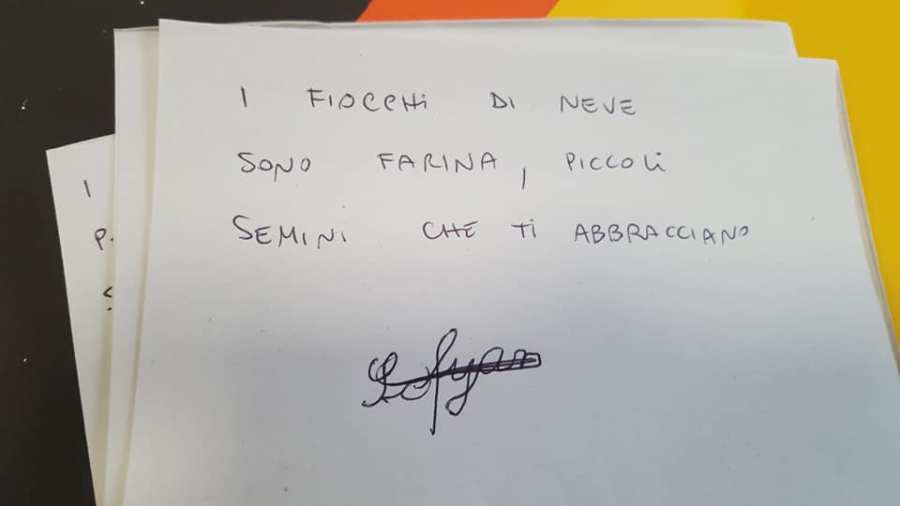 I FIOCCHI DI NEVE
SONO FARINA, PICCOLI
SEMINI CHE TI ABBRACCIANO
Sofyan
I
P